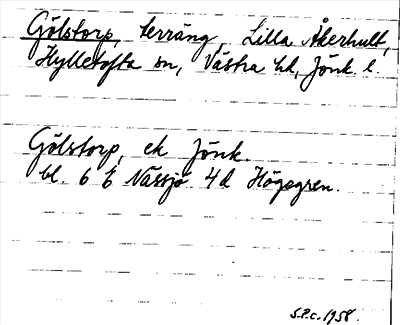 Gölstorp, terräng, Lilla Åkerhult,
Hylletofta sn, Västra hd, Jönk. l.
Gölstorp, ek Jönk.
bl. 6 E Nässjö 4d Högegren.
S.P.c. 1958.